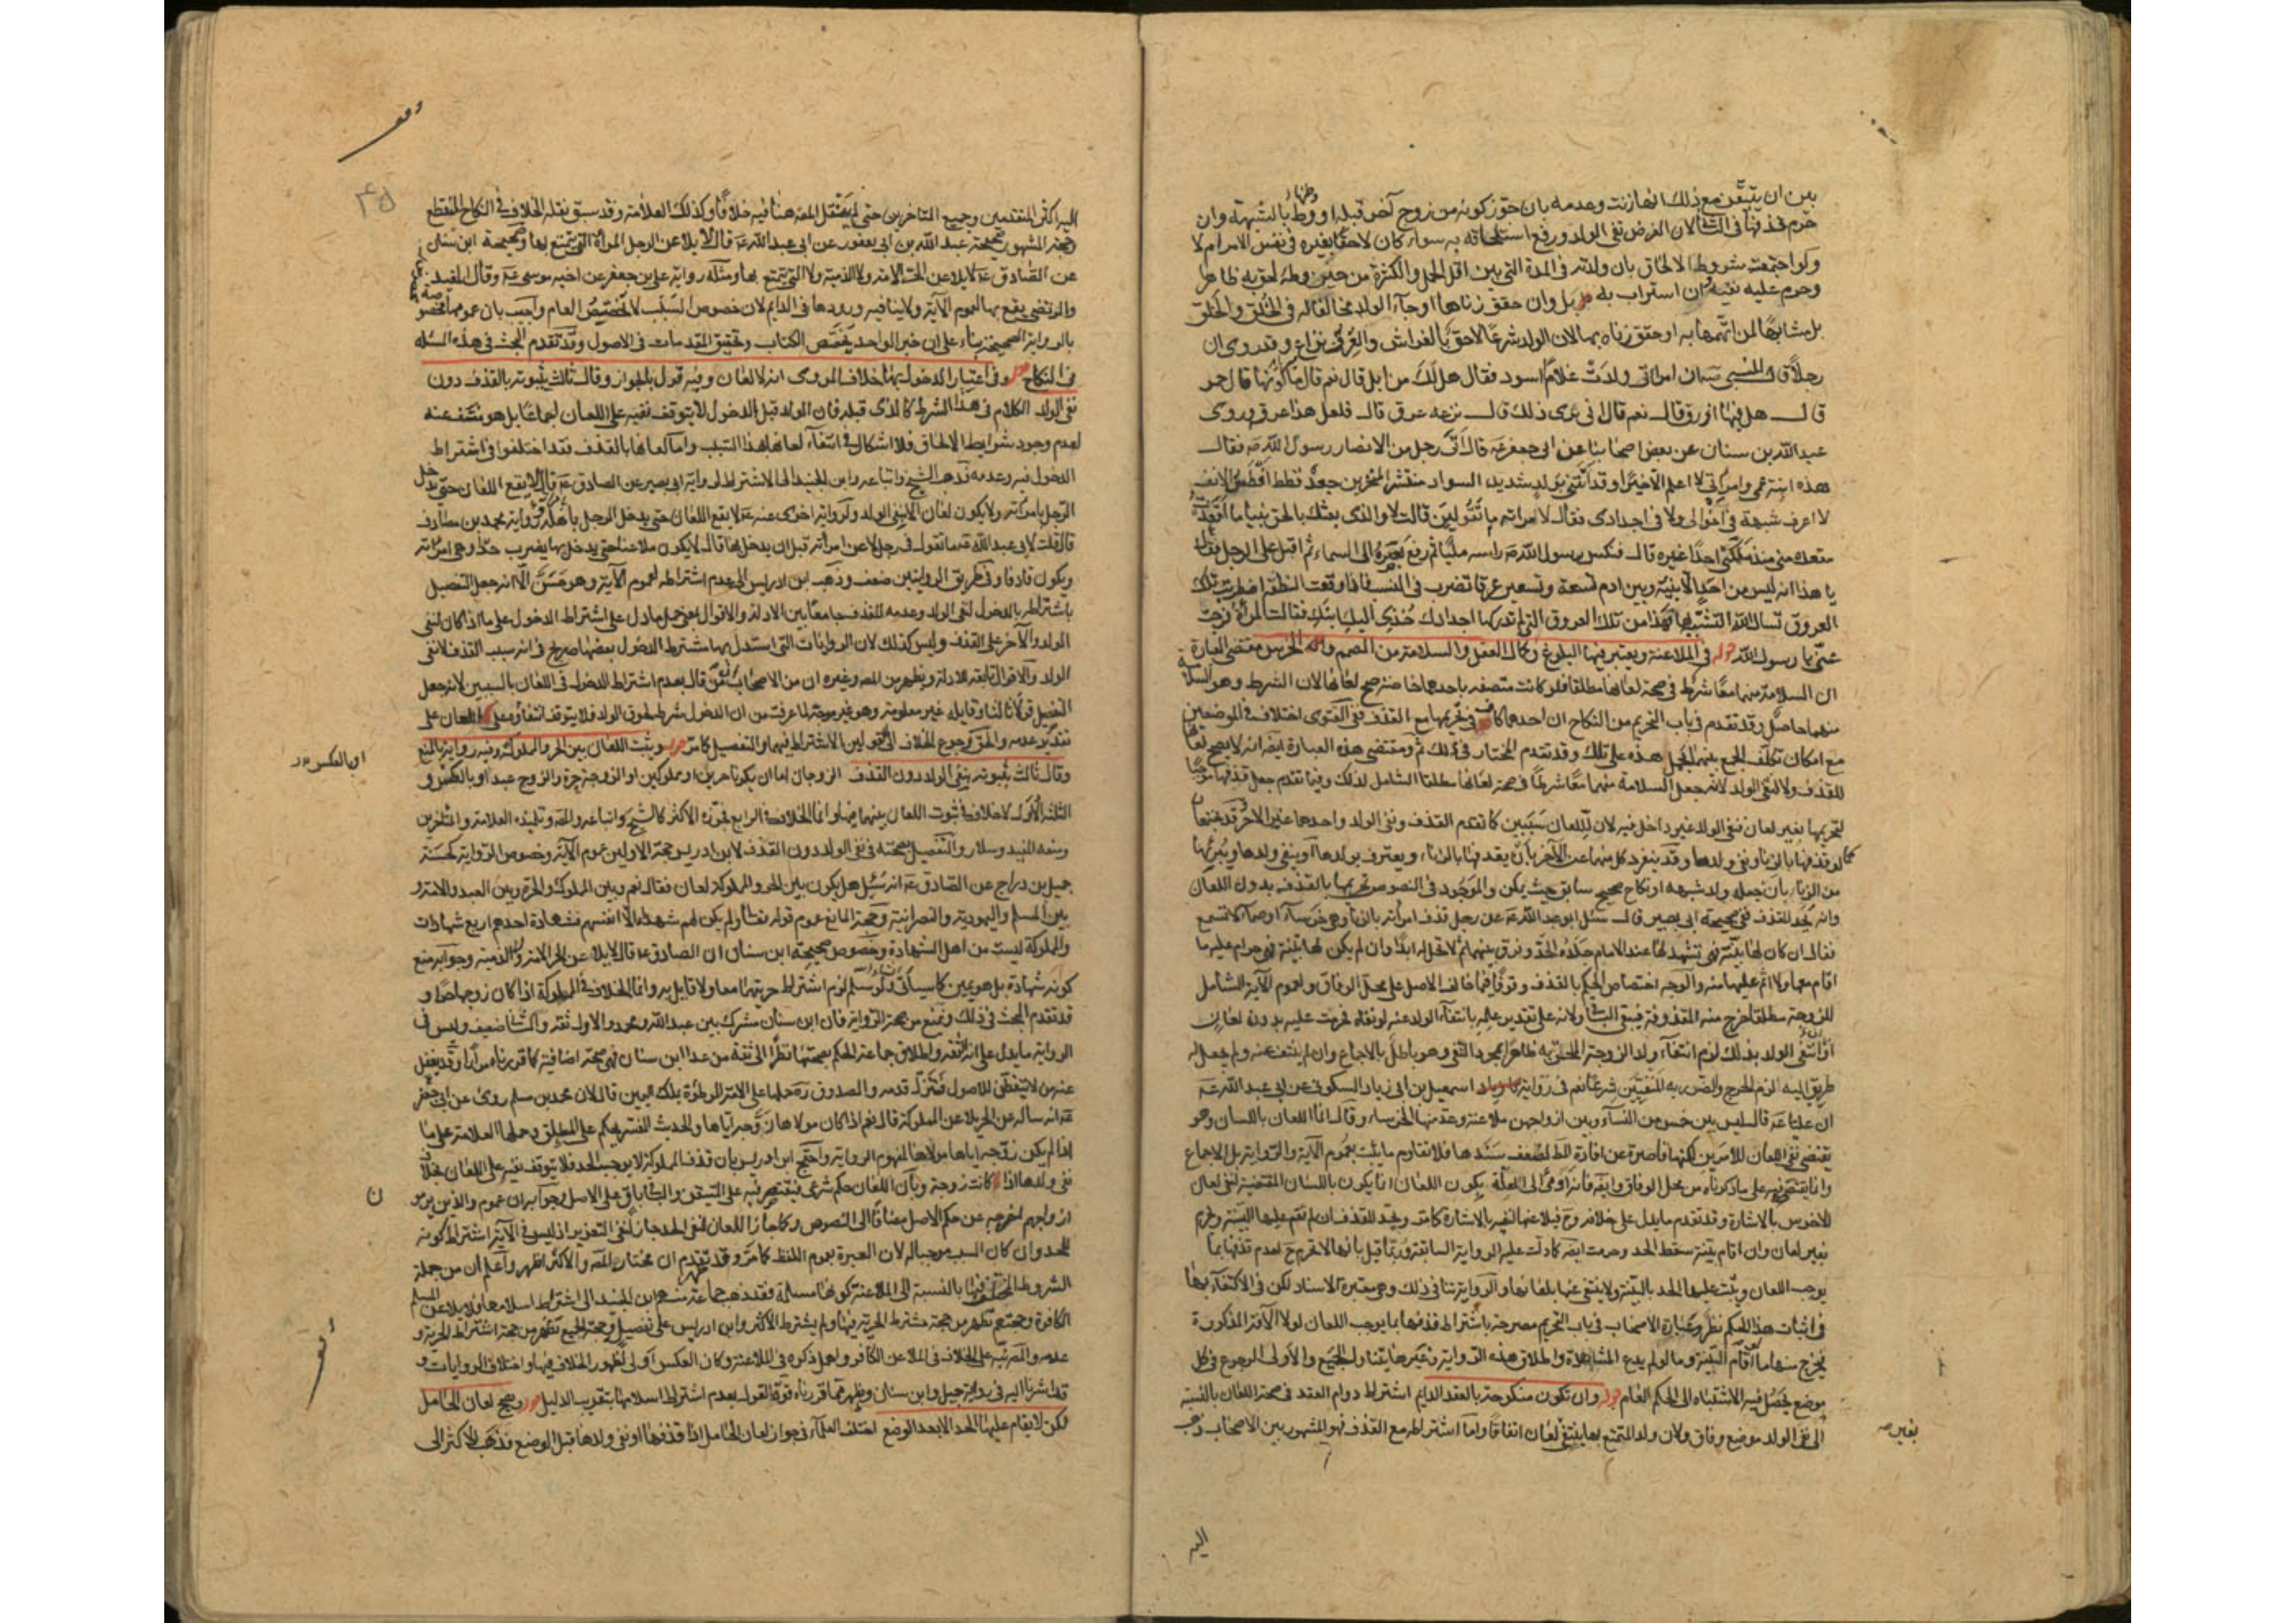 بين ان يتيقن مع ذلك انها زنت وعدمه بان جوز كونه من زوج آخر قبله او وطئها بالشبهة وان
حرم قذفها في الثاني لان الغرض نفي الولد ورفع استلحاقه به سواء كان لاحقا بغيره في نفس الامر ام لا
ولو اجتمعت شروط الالحاق بان ولدته في المدة التي بين اقل الحمل واكثره من حين وطئه لحق به ظاهرا
وحرم عليه نفيه وان استراب به بل وان حقق زناها او جاء الولد مخالفا له في الخلق والخلق
بل مشابها لمن اتهمها به او حقق زناه بها لان الولد شرعا لاحق بالفراش والعرق نزاع وقد روى ان
رجلا قال للنبي صه ان امراتي ولدت غلاما اسود فقال هل لك من ابل قال نعم قال ما الوانها قال حمر
قال هل فيها اورق قال نعم قال انى ترى ذلك قال نزعه عرق قال فلعل هذا عرق وروى
عبد الله بن سنان عن بعض اصحابنا عن ابي جعفر عه قال اتى رجل من الانصار رسول الله صه فقال
هذه ابنة عمي وامراتي لا اعلم الا خيرا وقد اتتني بولد شديد السواد منتشر المنخرين جعد قطط افطس الانف
لا اعرف شبهه في اخوالي ولا في اجدادي فقال لامراته ما تقولين قالت لا والذي بعثك بالحق نبيا ما اقعدت
مقعده مني منذ ملكني احدا غيره قال فنكس رسول الله صه راسه مليا ثم رفع بصره الى السماء ثم اقبل على الرجل فقال
يا هذا انه ليس من احد الا بينه وبين ادم تسعة وتسعين عرقا تضرب في النسب فاذا وقعت النطفة اضطربت تلك
العروق تسال الله الشبه لها فهذا من تلك العروق التي لم تدركها اجدادك خذي اليك ابنك فقالت المرأة فرجت
عني يا رسول الله قوله في الملاعنة ويعتبر فيها البلوغ وكمال العقل والسلامة من الصمم والخرس مقتضى العبارة
ان السلامة منهما معا شرط في صحة لعانها مطلقا فلو كانت متصفة باحدهما خاصة صح لعانها لان الشرط وهو السلامة
منهما حاصل وقد تقدم في باب التحريم من النكاح ان احدهما كاف في تحريمها مع القذف ففي الفتوى اختلاف في الموضعين
مع امكان تكلف الجمع بينهما بحمل هذه على تلك وقد تقدم المختار في ذلك ثم ومقتضى هذه العبارة ايضا انه لا يصح لعانها
للقذف ولا لنفي الولد لانه جعل السلامة منهما معا شرطا في صحة لعانها مطلقا الشامل لذلك وفيما تقدم جعل قذفها موجبا
لتحريمها بغير لعان فنفي الولد غير داخل فيه لان للعان سببين كما تقدم القذف ونفي الولد واحدهما غير الاخر وقد يجتمعان
كما لو قذفها بالزنا ونفى ولدها وقد ينفرد كل منهما عن الاخر بان يقذفها بالزنا ويعترف بولدها او ينفي ولدها ويبرئها
من الزنا بان يجعله ولد شبهة او نكاح صحيح سابق حيث يمكن والموجود في النصوص تحريمها بالقذف بدون اللعان
وانه يحد للقذف ففي صحيحة ابي بصير قال سئل ابو عبد الله عه عن رجل قذف امرأته بالزنا وهي خرساء او صماء لا تسمع
فقال ان كان لها بينة تشهد لها عند الامام جلده الحد وفرق بينهما ثم لا تحل له ابدا وان لم يكن لها بينة فهي حرام عليه ما
اقام معها ولا اثم عليها منه والوجه اختصاص الحكم بالقذف وقوفا فيما خالف الاصل على محل الوفاق ولعموم الآية الشامل
للزوجة مطلقا خرج منه المقذوفة فيبقى الباقي ولانه على تقدير علمه بانتفاء الولد عنه لو نفاه فحرمت عليه بدون لعان
او انتفى الولد بذلك لزم انتفاء ولد الزوجة الملحق به ظاهرا بمجرد النفي وهو باطل بالاجماع وان لم ينتف عنه ولم يجعل له
طريق اليه لزم الحرج والضرر به المنفيين شرعا نعم في رواية اسمعيل بن ابي زياد السكوني عن ابي عبد الله عه
ان عليا عه قال ليس بين خمس من النساء وبين ازواجهن ملاعنة وعد منها الخرساء وقال انما اللعان باللسان وهو
يقتضي نفي اللعان للامرين لكنها قاصرة عن افادة الحكم لضعف سندها فلا تقاوم ما يثبت بعموم الآية والرواية بل الاجماع
وانما يقتصر فيه على ما ذكرناه من محل الوفاق وايضا فانه اومى الى العلة بكون اللعان انما يكون باللسان المقتضية لنفي لعان
الاخرس بالاشارة وقد تقدم ما يدل على خلافه وح فيلاعنها لنفيه بالاشارة كما مر ويحد للقذف ان لم تقم عليها البينة وتحرم
بغير لعان وان اقام بينة سقط الحد وحرمت ايضا كما دلت عليه الرواية السابقة وربما قيل بانها لا تحرم ح لعدم قذفها بما
يوجب اللعان ويثبت عليها الحد بالبينة ولا ينتفي عنها بلعانها والرواية تنافي ذلك وهي معتبرة الاسناد لكن في الاكتفاء بها
في اثبات هذا الحكم نظر وعبارة الاصحاب في باب التحريم مصرحة باشتراط قذفها بما يوجب اللعان لولا الآفة المذكورة
فيخرج منها ما لو اقام البينة وما لو لم يدع المشاهدة واطلاق هذه الرواية وغيرها يتناول الجميع والاولى الرجوع في كل
موضع يحصل فيه الاشتباه الى الحكم العام قوله وان تكون منكوحة بالعقد الدايم اشتراط دوام العقد في صحة اللعان بالنسبة
الى نفي الولد موضع وفاق ولان ولد المتمتع بها ينتفي بغير لعان اتفاقا واما اشتراطه مع القذف فهو المشهور بين الاصحاب ذهب
اليه
اليه اكثر المتقدمين وجميع المتاخرين حتى لم ينقل المصه هنا فيه خلافا وكذلك العلامة وقد سبق نقله الخلاف في النكاح المنقطع
وحجة المشهور صحيحة عبد الله بن ابي يعفور عن ابي عبد الله عه قال لا يلاعن الرجل المرأة التي يتمتع بها وصحيحة ابن سنان
عن الصادق عه لا يلاعن الحر الامة ولا الذمية ولا التي يتمتع بها ومثله رواية علي بن جعفر عن اخيه موسى عه وقال المفيد
والمرتضى يقع بها لعموم الآية ولا ينافيه ورودها في الدايم لان خصوص السبب لا يخصص العام واجيب بان عمومها مخصوص
بالرواية الصحيحة بناء على ان خبر الواحد يخصص الكتاب وتحقيق المقدمات في الاصول وقد تقدم البحث في هذه المسئلة
في النكاح قوله وفي اعتبار الدخول بها خلاف المروى انه لا لعان وفيه قول بالجواز وقال ثالث بثبوته بالقذف دون
نفي الولد الكلام في هذا الشرط كالذي قبله فان الولد قبل الدخول لا يتوقف نفيه على اللعان اجماعا بل هو منتف عنه
لعدم وجود شرايط الالحاق فلا اشكال في انتفاء لعانها بهذا السبب واما لعانها بالقذف فقد اختلفوا في اشتراط
الدخول فيه وعدمه فذهب الشيخ واتباعه وابن الجنيد الى الاشتراط لرواية ابي بصير عن الصادق عه قال لا يقع اللعان حتى يدخل
الرجل بامراته ولا يكون لعان الا بنفي الولد ولرواية اخرى عنه عه لا يقع اللعان حتى يدخل الرجل باهله ورواية محمد بن مضارب
قال قلت لابي عبد الله عه ما تقول في رجل لاعن امرأته قبل ان يدخل بها قال لا يكون ملاعنا حتى يدخل بها يضرب حدا وهي امرأته
ويكون قاذفا وفي طريق الروايتين ضعف وذهب ابن ادريس الى عدم اشتراطه لعموم الآية وهو حسن الا انه جعل التفصيل
باشتراطه بالدخول لنفي الولد وعدمه للقذف جامعا بين الادلة والاقوال بمعنى حمل ما دل على اشتراط الدخول على ما اذا كان لنفي
الولد والآخر على القذف وليس كذلك لان الروايات التي استدل بها مشترط الدخول بعضها صريح في انه سبب القذف لا نفي
الولد والاقوال تابعة للادلة ويظهر من المصه وغيره ان من الاصحاب من قال بعدم اشتراط الدخول في اللعان بالسببين لانه جعل
التفصيل قولا ثالثا وقايله غير معلوم وهو غير موجه لما عرفت من ان الدخول شرط لحوق الولد فلا يتوقف انتفاؤه على اللعان على
تقدير عدمه والحق رجوع الخلاف الى قولين الاشتراط فيهما والتفصيل كما مر قوله ويثبت اللعان بين الحر والمملوكة وفيه رواية بالمنع
وقال ثالث بثبوته بنفي الولد دون القذف الزوجان اما ان يكونا حرين او مملوكين او الزوجة حرة والزوج عبد او بالعكس و
او بالعكس صه
الثلثة الاول لا خلاف في ثبوت اللعان بينهما فيها وانما الخلاف في الرابع فجوزه الاكثر كالشيخ واتباعه والمصه وتلميذه العلامة والمتاخرين
ومنعه المفيد وسلار والتفصيل بصحته في نفي الولد دون القذف لابن ادريس حجة الاولين عموم الآية وخصوص الرواية كحسنة
جميل بن دراج عن الصادق عه انه سئل هل يكون بين الحر والمملوكة لعان فقال نعم وبين المملوك والحرة وبين العبد والامة و
بين المسلم واليهودية والنصرانية وحجة المانع عموم قوله تعالى ولم يكن لهم شهداء الا انفسهم فشهادة احدهم اربع شهادات
والمملوكة ليست من اهل الشهادة وخصوص صحيحة ابن سنان ان الصادق عه قال لا يلاعن الحر الامة ولا الذمية وجوابه منع
كونه شهادة بل هو يمين كما سياتي ولو سلم لزم اشتراط حريتهما معا ولا قايل به وانما الخلاف في المملوكة اذا كان زوجها حرا و
قد تقدم البحث في ذلك ونمنع من صحة الرواية فان ابن سنان مشترك بين عبد الله ومحمد والاول ثقة والثاني ضعيف وليس في
الرواية ما يدل على انه الثقة واطلاق جماعة الحكم بصحتها نظرا الى ثقة من عدا ابن سنان فهي صحة اضافية كما قررناه مرارا وقد يغفل
عنه من لا يتفطن للاصول فتزل قدمه والصدوق ره حملها على الامة الموطوءة بملك اليمين قال لان محمد بن مسلم روى عن ابي جعفر
عه انه ساله عن الحر يلاعن المملوكة قال نعم اذا كان مولاها زوجه اياها والحديث المفسر يحكم على المطلق وحملها العلامة على ما
اذا لم يكن زوجه اياها مولاها لمفهوم الرواية واحتج ابن ادريس بان قذف المملوكة لا يوجب الحد فلا يتوقف نفيه على اللعان بخلاف
نفي ولدها اذا كانت زوجة وبان اللعان حكم شرعي فيقتصر فيه على المتيقن والباقي باق على الاصل وجوابه ان عموم والذين يرمون
ازواجهم اخرجه عن حكم الاصل مضافا الى النصوص وكما جاز اللعان لنفي الحد جاز لنفي التعزير اذ ليس في الآية اشتراط كونه
للحد وان كان السبب موجبا له لان العبرة بعموم اللفظ كما مر وقد تقدم ان مختار المصه والاكثر اظهر واعلم ان من جملة
الشروط المختلف فيها بالنسبة الى الملاعنة كونها مسلمة فقد ذهب جماعة منهم ابن الجنيد الى اشتراط اسلامها فلا يلاعن المسلم
الكافرة وحجتهم تظهر من حجة مشترط الحرية فيها ولم يشترط الاكثر وابن ادريس على تفصيل وحجة الجميع تظهر من حجة اشتراط الحرية و
عدمه والمصه نبه على الخلاف في الملاعن الكافر واهمل ذكره في الملاعنة وكان العكس اولى لظهور الخلاف فيها واختلاف الروايات و
قد اشرنا اليه في رواية جميل وابن سنان ويظهر مما قررناه قوة القول بعدم اشتراط اسلامها بتقريب الدليل قوله ويصح لعان الحامل
لكن لا يقام عليها الحد الا بعد الوضع اختلف العلماء في جواز لعان الحامل اذا قذفها او نفى ولدها قبل الوضع فذهب الاكثر الى